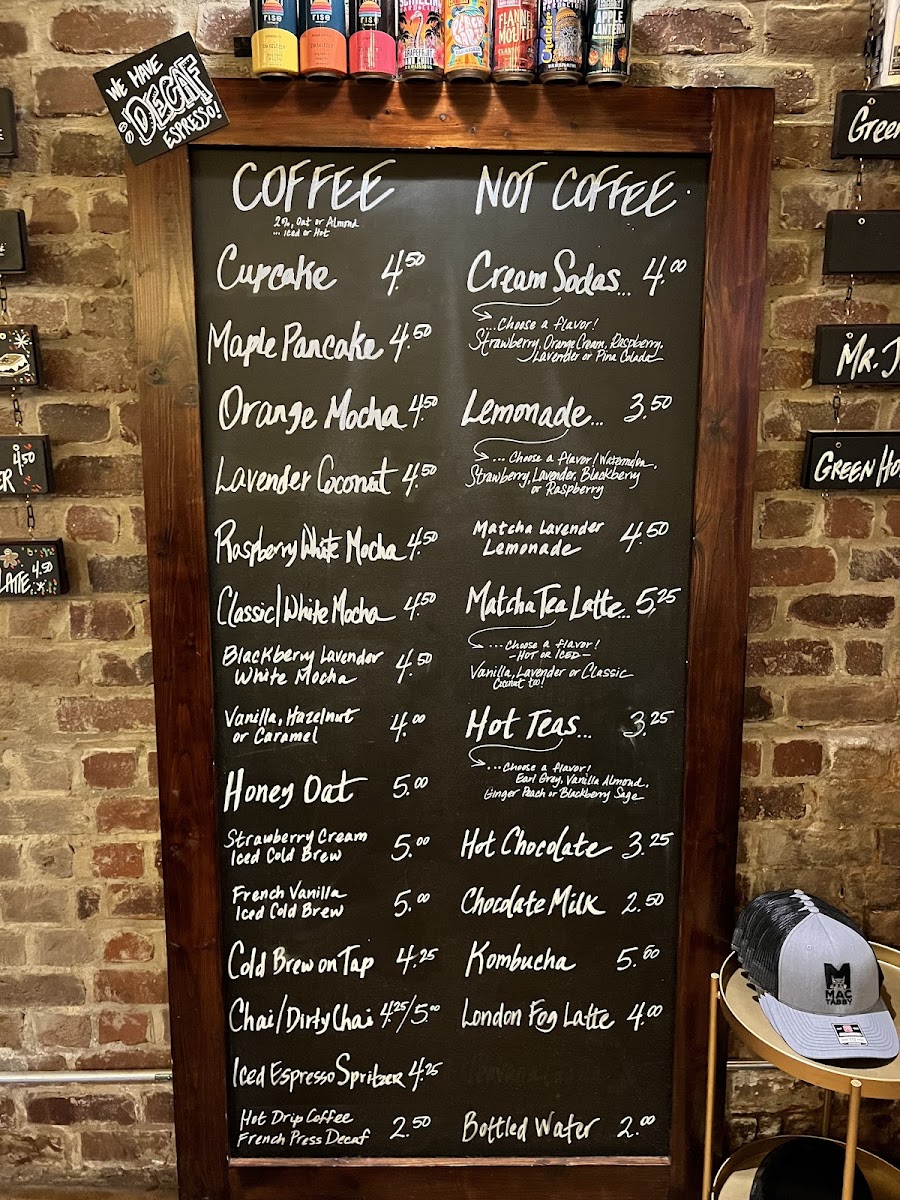 rise
rise
rise
GRAPEFRUIT
AND CHILL
FLANNEL
MOUTH
APPLE
LANTERN
WE HAVE
DECAF
ESPRESSO!
COFFEE
2%, Oat or Almond
... iced or Hot
Cupcake 4.50
Maple Pancake 4.50
Orange Mocha 4.50
Lavender Coconut 4.50
Raspberry White Mocha 4.50
Classic/White Mocha 4.50
Blackberry Lavender
White Mocha 4.50
Vanilla, Hazelnut
or Caramel 4.00
Honey Oat 5.00
Strawberry Cream
Iced Cold Brew 5.00
French Vanilla
Iced Cold Brew 5.00
Cold Brew on Tap 4.25
Chai/Dirty Chai 4.25/5.00
Iced Espresso Spritzer 4.25
Hot Drip Coffee
French Press Decaf 2.50
NOT COFFEE.
Cream Sodas... 4.00
...Choose a flavor!
Strawberry, Orange Cream, Raspberry,
Lavender or Pina Colada
Lemonade... 3.50
... Choose a flavor! Watermelon,
Strawberry, Lavender, Blackberry
or Raspberry
Matcha Lavender
Lemonade 4.50
Matcha Tea Latte... 5.25
...Choose a flavor!
-HOT OR ICED-
Vanilla, Lavender or Classic
Coconut too!
Hot Teas... 3.25
...Choose a flavor!
Earl Grey, Vanilla Almond,
Ginger Peach or Blackberry Sage
Hot Chocolate 3.25
Chocolate Milk 2.50
Kombucha 5.50
London Fog Latte 4.00
Bottled Water 2.00
4.50
LATTE 4.50
Green
MR. J
GREEN HO
MAC
TABBY